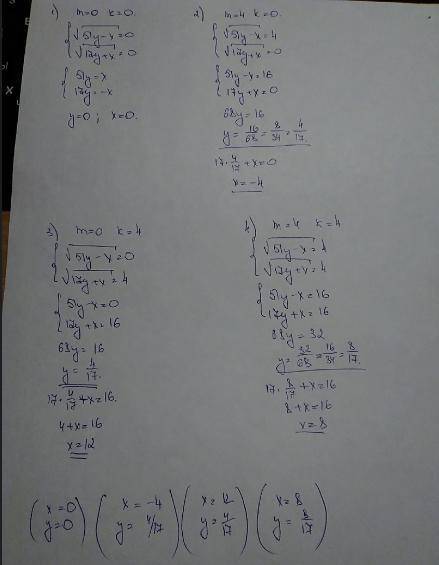 1) m=0 k=0.
{ √51y-x=0
√17y+x=0
{ 51y=x
17y=-x
y=0; x=0.
2) m=4 k=0.
{ √51y-x=4
√17y+x=0
{ 51y-x=16
17y+x=0
68y=16
y=16/68=8/34=4/17.
17·4/17+x=0
x=-4
3) m=0 k=4
{ √51y-x=0
√17y+x=4
{ 51y-x=0
17y+x=16
68y=16
y=4/17.
17·4/17+x=16.
4+x=16
x=12
4) m=4 k=4
{ √51y-x=4
√17y+x=4
{ 51y-x=16
17y+x=16
68y=32
y=32/68=16/34=8/17.
17·8/17+x=16
8+x=16
x=8
(x=0
y=0)
(x=-4
y=4/17)
(x=12
y=4/17)
(x=8
y=8/17)